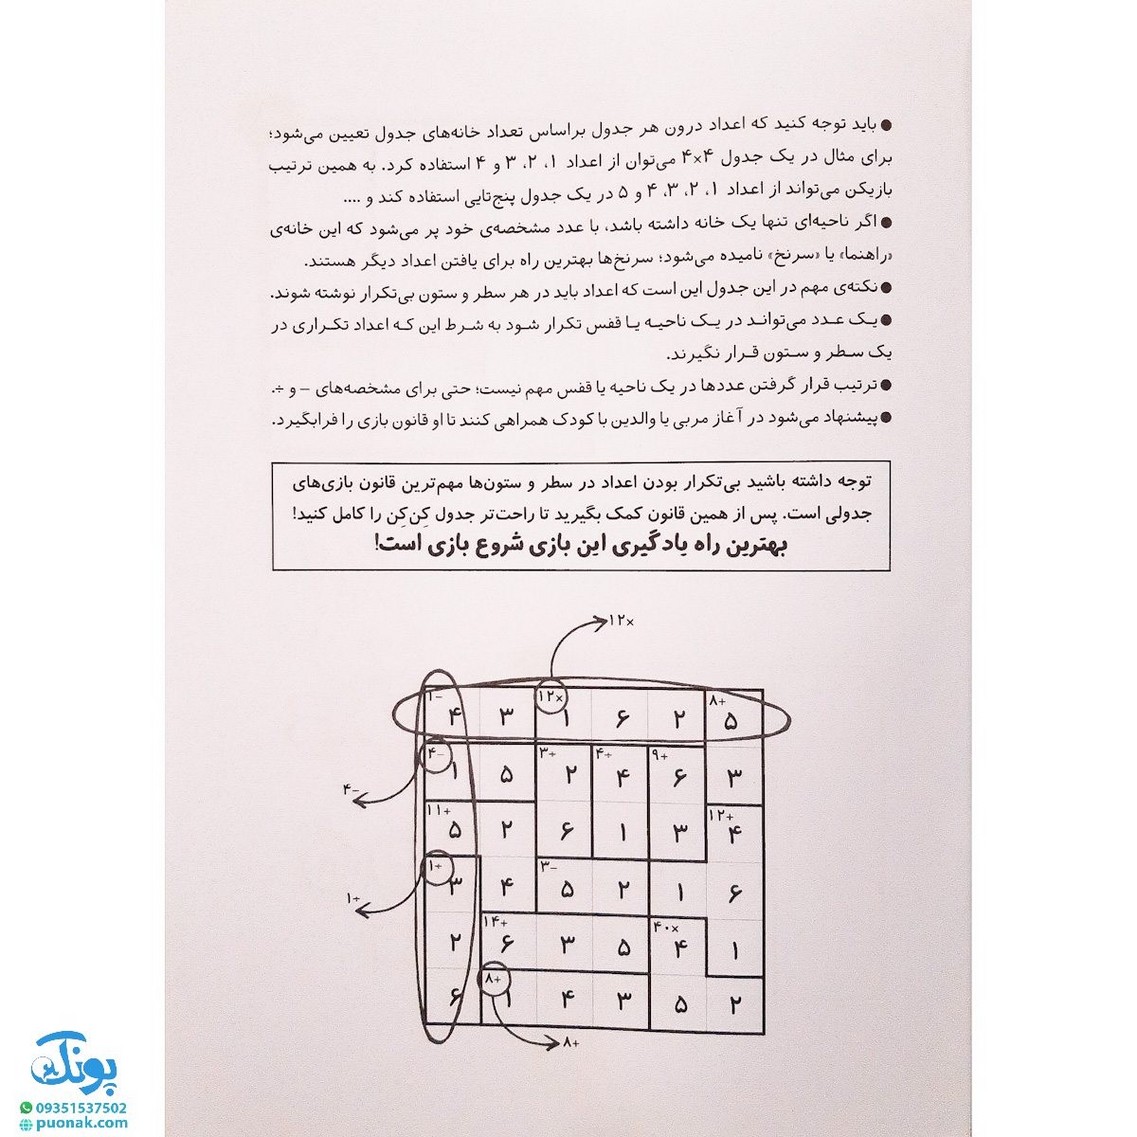 ● باید توجه کنید که اعداد درون هر جدول براساس تعداد خانه‌های جدول تعیین می‌شود؛
برای مثال در یک جدول ۴×۴ می‌توان از اعداد ۱، ۲، ۳ و ۴ استفاده کرد. به همین ترتیب
بازیکن می‌تواند از اعداد ۱، ۲، ۳، ۴ و ۵ در یک جدول پنج‌تایی استفاده کند و ....
● اگر ناحیه‌ای تنها یک خانه داشته باشد، با عدد مشخصه‌ی خود پر می‌شود که این خانه‌ی
«راهنما» یا «سرنخ» نامیده می‌شود؛ سرنخ‌ها بهترین راه برای یافتن اعداد دیگر هستند.
● نکته‌ی مهم در این جدول این است که اعداد باید در هر سطر و ستون بی‌تکرار نوشته شوند.
● یک عدد می‌تواند در یک ناحیه یا قفس تکرار شود به شرط این که اعداد تکراری در
یک سطر و ستون قرار نگیرند.
● ترتیب قرار گرفتن عددها در یک ناحیه یا قفس مهم نیست؛ حتی برای مشخصه‌های − و ÷.
● پیشنهاد می‌شود در آغاز مربی یا والدین با کودک همراهی کنند تا او قانون بازی را فرابگیرد.
توجه داشته باشید بی‌تکرار بودن اعداد در سطر و ستون‌ها مهم‌ترین قانون بازی‌های
جدولی است. پس از همین قانون کمک بگیرید تا راحت‌تر جدول کِن‌کِن را کامل کنید!
بهترین راه یادگیری این بازی شروع بازی است!
۱۲×
۱− ۱۲× ۸+
۴ ۳ ۱ ۶ ۲ ۵
۴− ۳÷ ۴÷ ۹+
۱ ۵ ۲ ۴ ۶ ۳
۴−
۱۱+ ۱۲+
۵ ۲ ۶ ۱ ۳ ۴
۱÷ ۳−
۳ ۴ ۵ ۲ ۱ ۶
۱÷
۱۴+ ۴۰×
۲ ۶ ۳ ۵ ۴ ۱
۸+
۶ ۱ ۴ ۳ ۵ ۲
۸+
پونک
09351537502
puonak.com